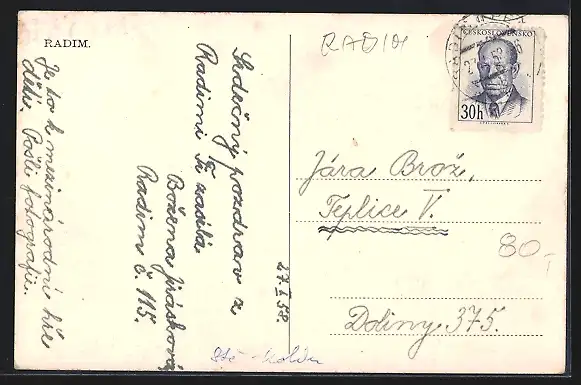 RADIM.
Je to k mezinárodní hře
dětí. Pošli fotografie.
Srdečný pozdrav z
Radimi Ti zasílá
Božena
Radim č. 115.
27. I. 58.
RADIM
ČESKOSLOVENSKO
30h
Jára Brož,
Teplice V.
Doliny 375.
80,-